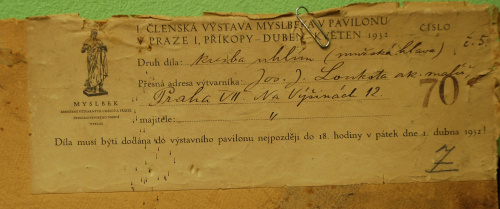 I. ČLENSKÁ VÝSTAVA MYSLBEKA V PAVILONU
V PRAZE I, PŘÍKOPY – DUBEN – KVĚTEN 1932
ČÍSLO
Druh díla: kresba uhlím (mužská hlava) č. 5
Přesná adresa výtvarníka: Jos. J. Loukota ak. malíř
Praha VII Na Výšinách 12.
70
majitele: "
MYSLBEK
Díla musí býti dodána do výstavního pavilonu nejpozději do 18. hodiny v pátek dne 1. dubna 1932!
7